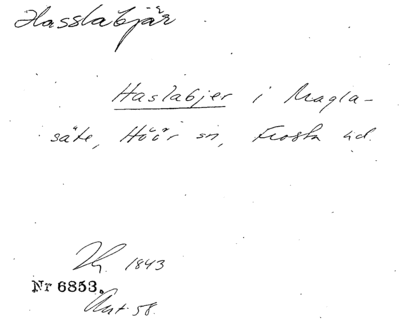 Hasslabjär
Haslabjer i Magla-
säte, Höör sn, Frosta hd.
1843
Nr 6853.
Ant. 58.